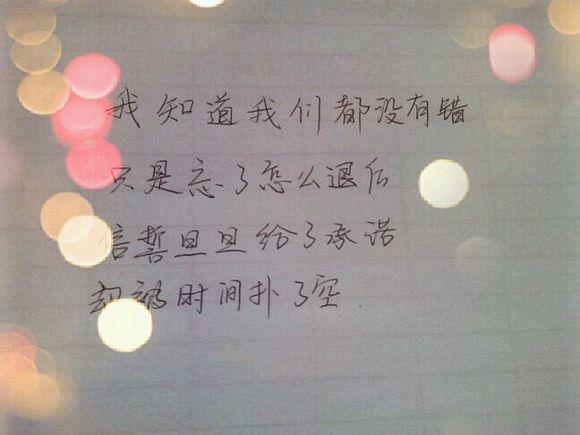 我知道我们都没有错
只是忘了怎么退后
信誓旦旦给了承诺
却被时间扑了空.